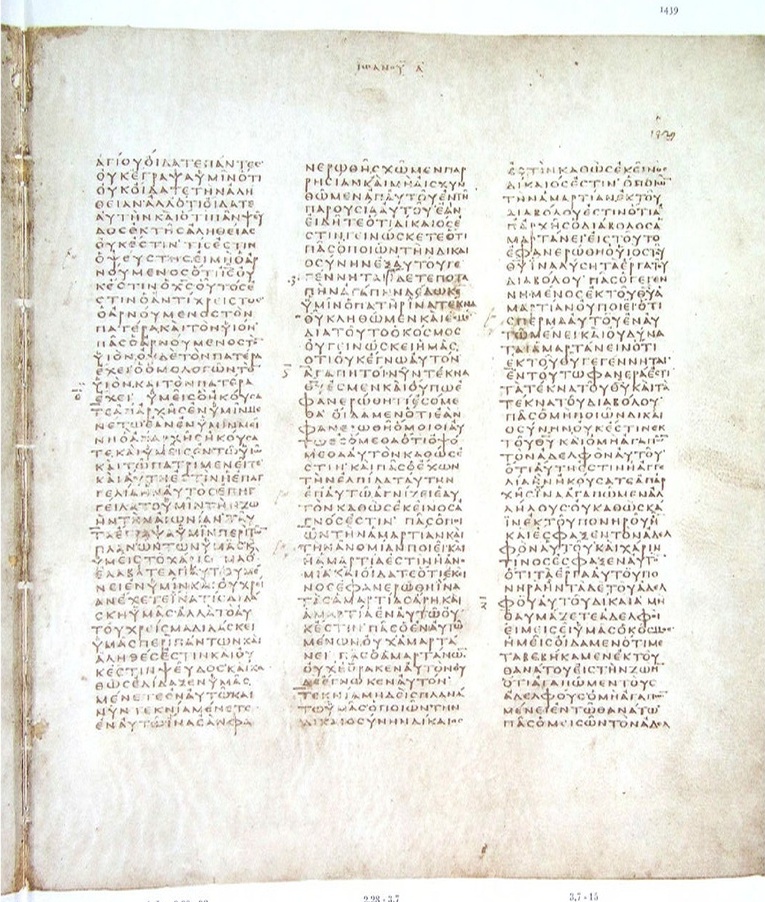 1439
ΙΩΑΝΟΥ Α
ΑΓΙΟΥΟΙΔΑΤΕΠΑΝΤΕϹ
ΟΥΚΕΓΡΑΨΑΥΜΙΝΟΤΙ
ΟΥΚΟΙΔΑΤΕΤΗΝΑΛΗ
ΘΕΙΑΝΑΛΛΟΤΙΟΙΔΑΤΕ
ΑΥΤΗΝΚΑΙΟΤΙΠΑΝΨΕΥ
ΔΟϹΕΚΤΗϹΑΛΗΘΕΙΑϹ
ΟΥΚΕϹΤΙΝ ΤΙϹΕϹΤΙΝ
ΟΨΕΥϹΤΗϹΕΙΜΗΟΑΡ
ΝΟΥΜΕΝΟϹΟΤΙΙϹΟΥ
ΚΕϹΤΙΝΟΧϹΟΥΤΟϹΕ
ϹΤΙΝΟΑΝΤΙΧΡΕΙϹΤΟϹ
ΟΑΡΝΟΥΜΕΝΟϹΤΟΝ
ΠΑΤΕΡΑΚΑΙΤΟΝΥΙΟΝ
ΠΑϹΟΑΡΝΟΥΜΕΝΟϹΤΟ
ΥΙΟΝΟΥΔΕΤΟΝΠΑΤΕΡΑ
ΕΧΕΙΟΟΜΟΛΟΓΩΝΤΟ
ΥΙΟΝΚΑΙΤΟΝΠΑΤΕΡΑ
ΕΧΕΙ ΥΜΕΙϹΟΗΚΟΥϹΑ
ΤΕΑΠΑΡΧΗϹΕΝΥΜΙΝΜΕ
ΝΕΤΩΕΑΝΕΝΥΜΙΝΜΕΙ
ΝΗΟΑΠΑΡΧΗϹΗΚΟΥϹΑ
ΤΕΚΑΙΥΜΕΙϹΕΝΤΩΥΙΩ
ΚΑΙΤΩΠΑΤΡΙΜΕΝΕΙΤΕ
ΚΑΙΑΥΤΗΕϹΤΙΝΗΕΠΑΓ
ΓΕΛΙΑΗΝΑΥΤΟϹΕΠΗΓ
ΓΕΙΛΑΤΟΥΜΙΝΤΗΝΖΩ
ΗΝΤΗΝΑΙΩΝΙΑΝΤΑΥ
ΤΑΕΓΡΑΨΑΥΜΙΝΠΕΡΙΤΩ
ΠΛΑΝΩΝΤΩΝΥΜΑϹΚ
ΥΜΕΙϹΤΟΧΑΡΙϹΜΑΟ
ΕΛΑΒΕΤΕΑΠΑΥΤΟΥΜΕ
ΝΕΙΕΝΥΜΙΝΚΑΙΟΥΧΡΕΙ
ΑΝΕΧΕΤΕΙΝΑΤΙϹΔΙΔΑ
ϹΚΗΥΜΑϹΑΛΛΑΤΟΑΥ
ΤΟΥΧΡΕΙϹΜΑΔΙΔΑϹΚΕΙ
ΥΜΑϹΠΕΡΙΠΑΝΤΩΝΚΑΙ
ΑΛΗΘΕϹΕϹΤΙΝΚΑΙΟΥ
ΚΕϹΤΙΝΨΕΥΔΟϹΚΑΙΚΑ
ΘΩϹΕΔΙΔΑΞΕΝΥΜΑϹ
ΜΕΝΕΤΕΕΝΑΥΤΩΚΑΙ
ΝΥΝΤΕΚΝΙΑΜΕΝΕΤΕ
ΕΝΑΥΤΩΙΝΑΕΑΝΦΑ
ΝΕΡΩΘΗϹΧΩΜΕΝΠΑΡ
ΡΗϹΙΑΝΚΑΙΜΗΑΙϹΧΥΝ
ΘΩΜΕΝΑΠΑΥΤΟΥΕΝΤΗ
ΠΑΡΟΥϹΙΑΑΥΤΟΥΕΑΝ
ΕΙΔΗΤΕΟΤΙΔΙΚΑΙΟϹΕ
ϹΤΙΝΓΕΙΝΩϹΚΕΤΕΟΤΙ
ΠΑϹΟΠΟΙΩΝΤΗΝΔΙΚΑΙ
ΟϹΥΝΗΝΕΞΑΥΤΟΥΓΕ
ΓΕΝΝΗΤΑΙΙΔΕΤΕΠΟΤΑ
ΠΗΝΑΓΑΠΗΝΔΕΔΩΚΕ
ΥΜΙΝΟΠΑΤΗΡΙΝΑΤΕΚΝΑ
ΘΥΚΛΗΘΩΜΕΝΚΑΙΕϹΜΕ
ΔΙΑΤΟΥΤΟΟΚΟϹΜΟϹ
ΟΥΓΕΙΝΩϹΚΕΙΗΜΑϹ
ΟΤΙΟΥΚΕΓΝΩΑΥΤΟΝ
ΑΓΑΠΗΤΟΙΝΥΝΤΕΚΝΑ
ΘΥΕϹΜΕΝΚΑΙΟΥΠΩΕ
ΦΑΝΕΡΩΘΗΤΙΕϹΟΜΕ
ΘΑ ΟΙΔΑΜΕΝΟΤΙΕΑΝ
ΦΑΝΕΡΩΘΗΟΜΟΙΟΙΑΥ
ΤΩΕϹΟΜΕΘΑΟΤΙΟΨΟ
ΜΕΘΑΑΥΤΟΝΚΑΘΩϹΕ
ϹΤΙΝ ΚΑΙΠΑϹΟΕΧΩΝ
ΤΗΝΕΛΠΙΔΑΤΑΥΤΗΝ
ΕΠΑΥΤΩΑΓΝΙΖΕΙΕΑΥ
ΤΟΝΚΑΘΩϹΕΚΕΙΝΟϹΑ
ΓΝΟϹΕϹΤΙΝ ΠΑϹΟΠΟΙ
ΩΝΤΗΝΑΜΑΡΤΙΑΝΚΑΙ
ΤΗΝΑΝΟΜΙΑΝΠΟΙΕΙΚΑΙ
ΗΑΜΑΡΤΙΑΕϹΤΙΝΗΑΝΟ
ΜΙΑΚΑΙΟΙΔΑΤΕΟΤΙΕΚΕΙ
ΝΟϹΕΦΑΝΕΡΩΘΗΙΝΑ
ΤΑϹΑΜΑΡΤΙΑϹΑΡΗΚΑΙ
ΑΜΑΡΤΙΑΕΝΑΥΤΩΟΥ
ΚΕϹΤΙΝ ΠΑϹΟΕΝΑΥΤΩ
ΜΕΝΩΝΟΥΧΑΜΑΡΤΑ
ΝΕΙ ΠΑϹΟΑΜΑΡΤΑΝΩ
ΟΥΧΕΟΡΑΚΕΝΑΥΤΟΝΟΥ
ΔΕΕΓΝΩΚΕΝΑΥΤΟΝ
ΤΕΚΝΙΑΜΗΔΕΙϹΠΛΑΝΑ
ΤΩΥΜΑϹΟΠΟΙΩΝΤΗΝ
ΔΙΚΑΙΟϹΥΝΗΝΔΙΚΑΙΟϹ
ΕϹΤΙΝΚΑΘΩϹΕΚΕΙΝΟϹ
ΔΙΚΑΙΟϹΕϹΤΙΝ ΟΠΟΙΩΝ
ΤΗΝΑΜΑΡΤΙΑΝΕΚΤΟΥ
ΔΙΑΒΟΛΟΥΕϹΤΙΝΟΤΙΑ
ΠΑΡΧΗϹΟΔΙΑΒΟΛΟϹΑ
ΜΑΡΤΑΝΕΙΕΙϹΤΟΥΤΟ
ΕΦΑΝΕΡΩΘΗΟΥΙΟϹΤΟΥ
ΘΥΙΝΑΛΥϹΗΤΑΕΡΓΑΤΟΥ
ΔΙΑΒΟΛΟΥ ΠΑϹΟΓΕΓΕΝ
ΝΗΜΕΝΟϹΕΚΤΟΥΘΥΑ
ΜΑΡΤΙΑΝΟΥΠΟΙΕΙΟΤΙ
ϹΠΕΡΜΑΑΥΤΟΥΕΝΑΥ
ΤΩΜΕΝΕΙΚΑΙΟΥΔΥΝΑ
ΤΑΙΑΜΑΡΤΑΝΕΙΝΟΤΙ
ΕΚΤΟΥΘΥΓΕΓΕΝΝΗΤΑΙ
ΕΝΤΟΥΤΩΦΑΝΕΡΑΕϹΤΙ
ΤΑΤΕΚΝΑΤΟΥΘΥΚΑΙΤΑ
ΤΕΚΝΑΤΟΥΔΙΑΒΟΛΟΥ
ΠΑϹΟΜΗΠΟΙΩΝΔΙΚΑΙ
ΟϹΥΝΗΝΟΥΚΕϹΤΙΝΕΚ
ΤΟΥΘΥ ΚΑΙΟΜΗΑΓΑΠΩ
ΤΟΝΑΔΕΛΦΟΝΑΥΤΟΥ
ΟΤΙΑΥΤΗΕϹΤΙΝΗΑΓΓΕ
ΛΙΑΗΝΗΚΟΥϹΑΤΕΑΠΑΡ
ΧΗϹΙΝΑΑΓΑΠΩΜΕΝΑΛ
ΛΗΛΟΥϹΟΥΚΑΘΩϹΚΑ
ΙΝΕΚΤΟΥΠΟΝΗΡΟΥΗ
ΚΑΙΕϹΦΑΞΕΝΤΟΝΑΔΕΛ
ΦΟΝΑΥΤΟΥΚΑΙΧΑΡΙΝ
ΤΙΝΟϹΕϹΦΑΞΕΝΑΥΤΟ
ΟΤΙΤΑΕΡΓΑΑΥΤΟΥΠΟ
ΝΗΡΑΗΝΤΑΔΕΤΟΥΑΔΕΛ
ΦΟΥΑΥΤΟΥΔΙΚΑΙΑ ΜΗ
ΘΑΥΜΑΖΕΤΕΑΔΕΛΦΟΙ
ΕΙΜΕΙϹΕΙΥΜΑϹΟΚΟϹΜΟϹ
ΗΜΕΙϹΟΙΔΑΜΕΝΟΤΙΜΕ
ΤΑΒΕΒΗΚΑΜΕΝΕΚΤΟΥ
ΘΑΝΑΤΟΥΕΙϹΤΗΝΖΩΗ
ΟΤΙΑΓΑΠΩΜΕΝΤΟΥϹ
ΑΔΕΛΦΟΥϹΟΜΗΑΓΑΠΩ
ΜΕΝΕΙΕΝΤΩΘΑΝΑΤΩ
ΠΑϹΟΜΕΙϹΩΝΤΟΝΑΔΕΛ
2,28 - 3,7
3,7 - 15